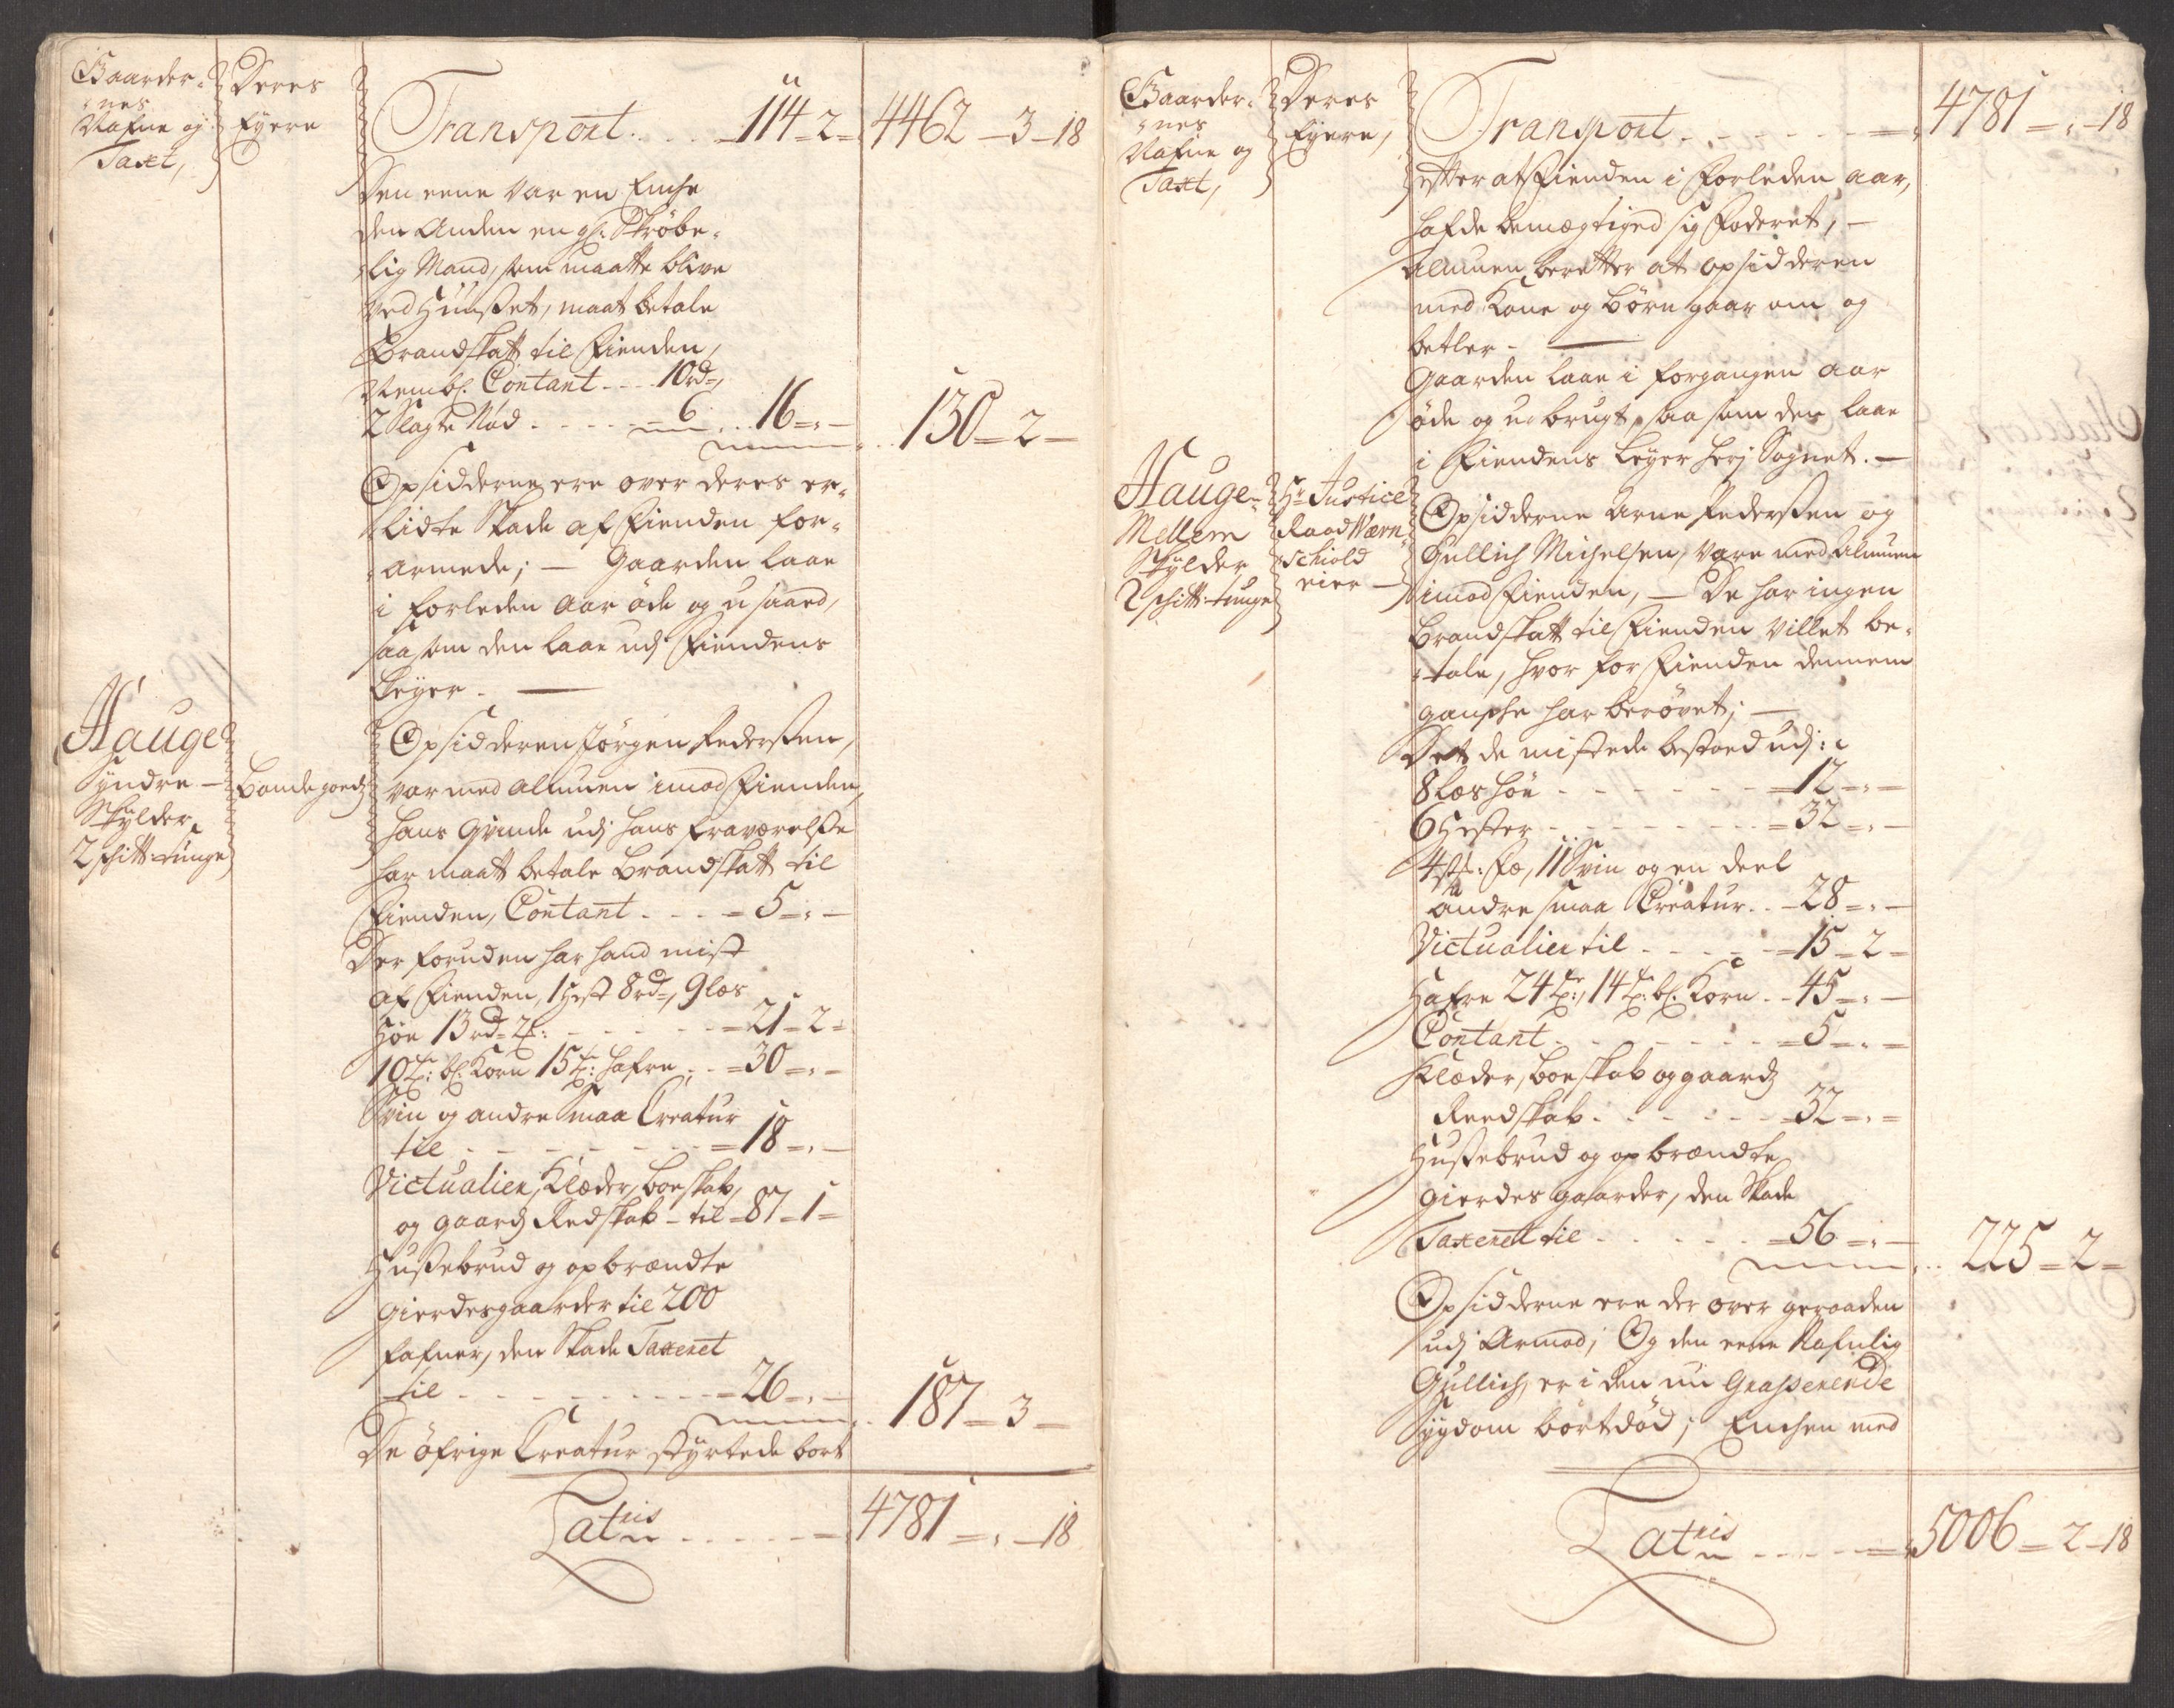 Gaarder-
nes
Nafne og
Taxt,
Deres
Eyere
Transport . . . 114 - 2 - 4462 - 3 - 18
Den eene var en Enche
den Anden en gl: Skrøbe-
lig Mand, som maatte blive
ved Huuset, maat betale
Brandskatt til Fienden,
Nembl. Contant - - - 10 rd
2 Slagte Nød - - - - 6 . . . 16 - „ - . . 130 - 2 -
Opsidderne ere over deres er-
lidte Skade af Fienden for-
armede; - Gaarden laae
i forleden Aar øde og usaaed,
saasom den laae udj Fiendens
Leyer. -
Hauge
Syndre -
Skylder
2 schitt: tunge
Bondegoedz
Opsidderen Jørgen Pedersen,
var med Almuen imod Fienden,
hans Qvinde udj hans fraværelse
har maatt betale Brandskatt til
Fienden, Contant . - - - 5 - „ -
Der foruden har hand mist
af Fienden, 1 Hest 8 rd, 9 læs
Høe 13 rd 2 - - - - 21 - 2 -
10 t: bl: Korn 15 t: hafre . - 30 - „ -
Svin og andre Smaa Creatur
til - - - - - - - 18 - „ -
Victualier, Klæder, boeskab,
og gaardz Redskab - til 87 - 1 -
Hussebrud og opbrændte
gierdesgaarder til 200
fafner, den Skade Taxeret
til - - - - - - - 26 - „ - . . 187 - 3 -
De øfrige Creatur styrtede bort
Latris . . . . . 4781 - „ - 18
Gaarder-
nes
Nafne og
Taxt,
Deres
Eyere,
Transport . - - - - - 4781 - „ - 18
etter at Fienden i forleden aar,
hafde bemægtiged sig Foderet, -
Almuen beretter at opsidderen
med Kone og Børn gaar om og
betler - -
Gaarden laae i forgangen Aar
øde og u-brugt, saasom den laae
i Fiendens Leyer herj Sognet. -
Hauge-
Mellem
Skylder
2 schitt: tunge
Hr Justice
Raad Wærn
schiold
eier -
Opsidderne Arne Pedersen og
Gullich Michelsen, vare med Almuen
imod Fienden, - De har ingen
Brandskatt til Fienden villet be-
tale, hvor for Fienden dennem
gansche har berøvet; -
Det de mistede bestoed udj:
8 læs høe - - - - - 12 - „ -
6 Hester - - - - - 32 - „ -
4 st: Fæ, 11 Svin og en deel
andre smaa Creatur . . - 28 - „ -
Victualier til - - - - 15 - 2 -
Hafre 24 t:, 14 t: bl: Korn . - 45 - „ -
Contant - - - - - 5 - „ -
Klæder, boeskab og gaardz
Reedskab . - - - - 32 - „ -
Hussebrud og op brændte
gierdes gaarder, den Skade
Taxeret til - - - - 56 - „ - . . 225 - 2 -
Opsidderne ere der over geraaden
udj Armod; Og den eene Nafnlig
Gullich, er i den nu Grasserende
Sygdom bortdød; Enchen med
Latris - - - - - 5006 - 2 - 18